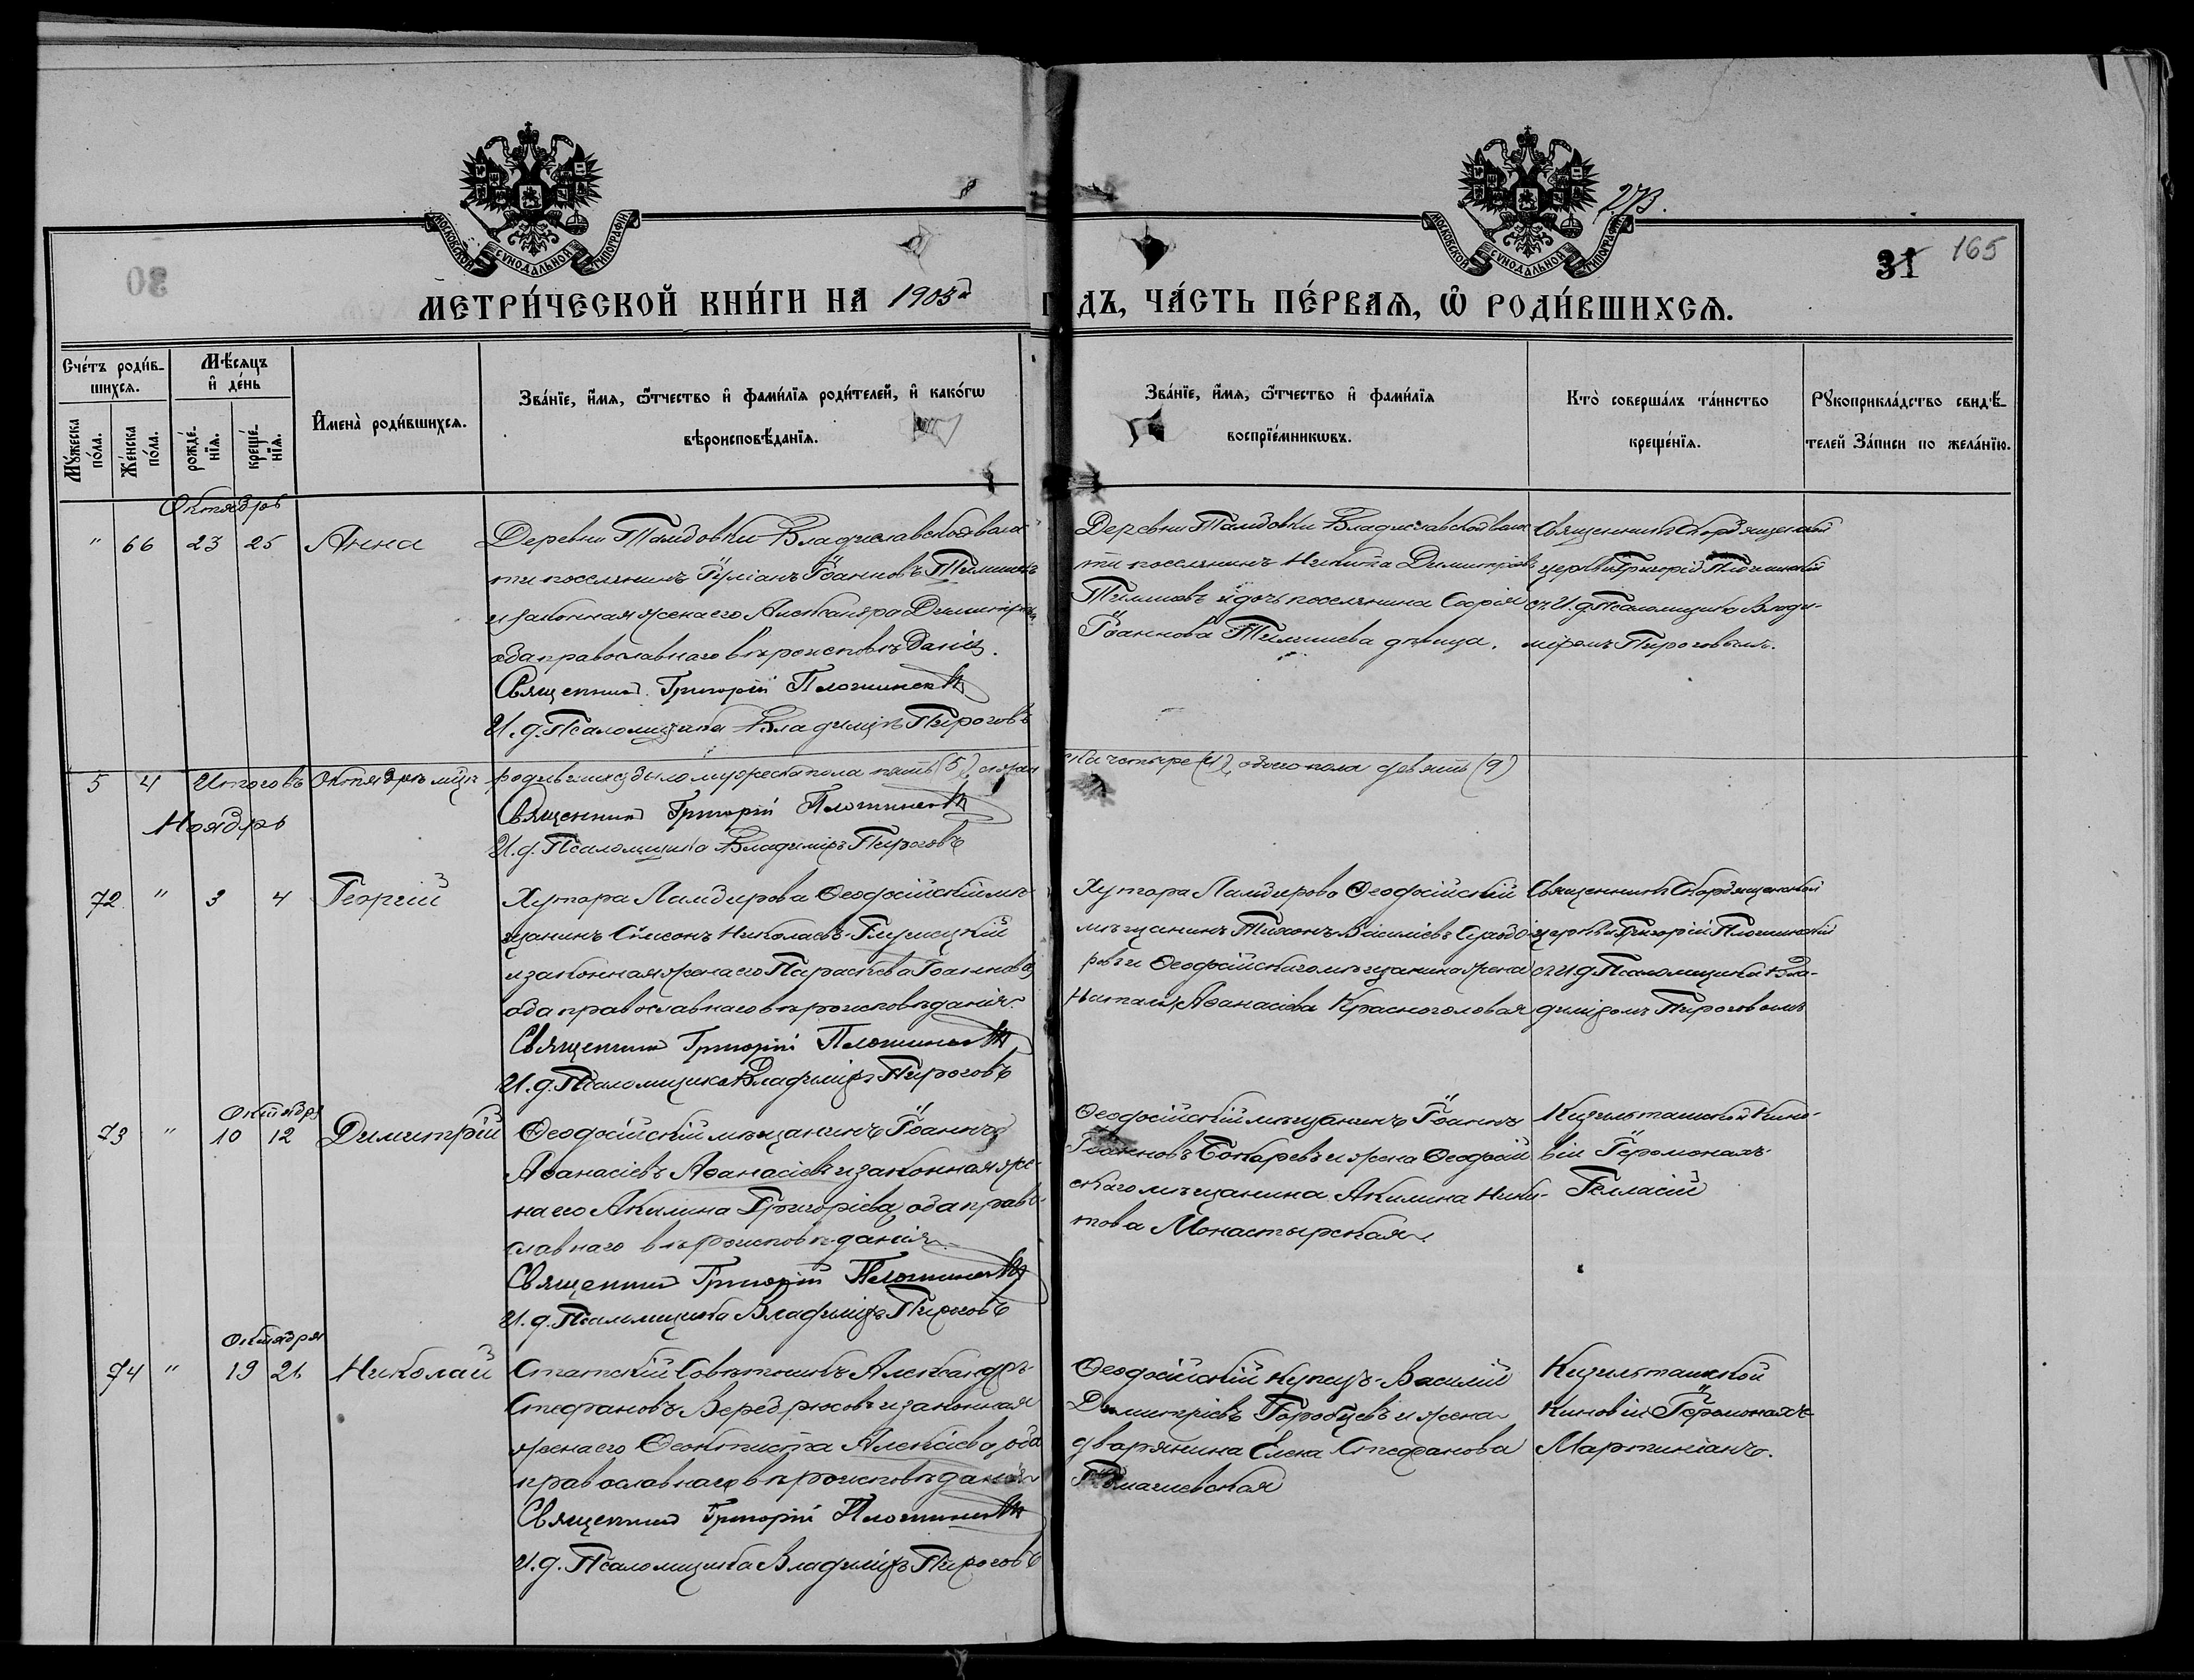 МОСКОВСКОЙ СУНОДАЛЬНОЙ ТИПОГРАФІИ
МОСКОВСКОЙ СУНОДАЛЬНОЙ ТИПОГРАФІИ
273.
30
31 165
МЕТРИ́ЧЕСКОЙ КНИ́ГИ НА 1903й ГОДЪ, ЧА́СТЬ ПЕ́РВАЯ, Ѡ РОДИ́ВШИХСЯ.
Сче́тъ роди́в-
шихся.
Му́жеска по́ла.
Же́нска по́ла.
Мѣ́сяцъ
и҆ де́нь
рожде́-
нїя.
креще́-
нїя.
И҆мена̀ роди́вшихся.
Зва́нїе, и҆́мя, ѻ҆́тчество и҆ фами́лїя роди́телей, и҆ како́гѡ
вѣроисповѣ́данїя.
Зва́нїе, и҆́мя, ѻ҆́тчество и҆ фами́лїя
воспрїе́мникѡвъ.
Кто̀ соверша́лъ та́инство
креще́нїя.
Рꙋкоприкла́дство свидѣ́-
телей За́писи по жела́нїю.
Октябрь
" 66 23 25 Анна
Деревни Владиславской волос
ти поселянинъ Іуліанъ Іоанновъ
и законная жена его Александра Димитріева
оба православнаго вѣроисповѣданія.
Священникъ Григорій
И. д. Псаломщика Владиміръ Пироговъ
Деревни Владиславской волос
ти поселянинъ Никита Димитріевъ
и дочь поселянина Софія
Іоаннова дѣвица.
Священникъ
церкви Григорій
съ И. д. Псаломщика Влади-
міромъ Пироговымъ.
5 4 Итого въ Октябрѣ мѣс. родившихся было мужеска пола пять (5), женска четыре (4), обоего пола девять (9)
Священникъ Григорій
И. д. Псаломщика Владиміръ Пироговъ
Ноябрь
72 " 3 4 Георгій
Хутора Ламбирова Ѳеодосійскій мѣ-
щанинъ Сѵмеонъ Николаевъ
и законная жена его Параскева Іоаннова,
оба православнаго вѣроисповѣданія.
Священникъ Григорій
И. д. Псаломщика Владиміръ Пироговъ
Хутора Ламбирова Ѳеодосійскій
мѣщанинъ Тихонъ Василіевъ
и Ѳеодосійскаго мѣщанина жена
Наталія Аѳанасіева Красноголовая
Священникъ
церкви Григорій
съ И. д. Псаломщика Вла-
диміромъ Пироговымъ
Октября
73 " 10 12 Димитрій
Ѳеодосійскій мѣщанинъ Іоаннъ
Аѳанасіевъ Аѳанасіевъ и законная же-
на его Акилина Григоріева, оба право-
славнаго вѣроисповѣданія.
Священникъ Григорій
И. д. Псаломщика Владиміръ Пироговъ
Ѳеодосійскій мѣщанинъ Іоаннъ
Іоанновъ Бокаревъ и жена Ѳеодосій
скаго мѣщанина Акилина Ники-
това Монастырская.
Кизильташской Кино-
віи Іеромонахъ
Геласій
Октября
74 " 19 21 Николай
Статскій Совѣтникъ Александръ
Стефановъ Вередрюсовъ и законная
жена его Ѳеоктиста Алексіева, оба
православнаго вѣроисповѣданія
Священникъ Григорій
И. д. Псаломщика Владиміръ Пироговъ
Ѳеодосійскій купецъ Василій
Димитріевъ Горобцевъ и жена
дворянина Елена Стефанова
Кизильташской
Киновіи Іеромонахъ
Мартиніанъ.